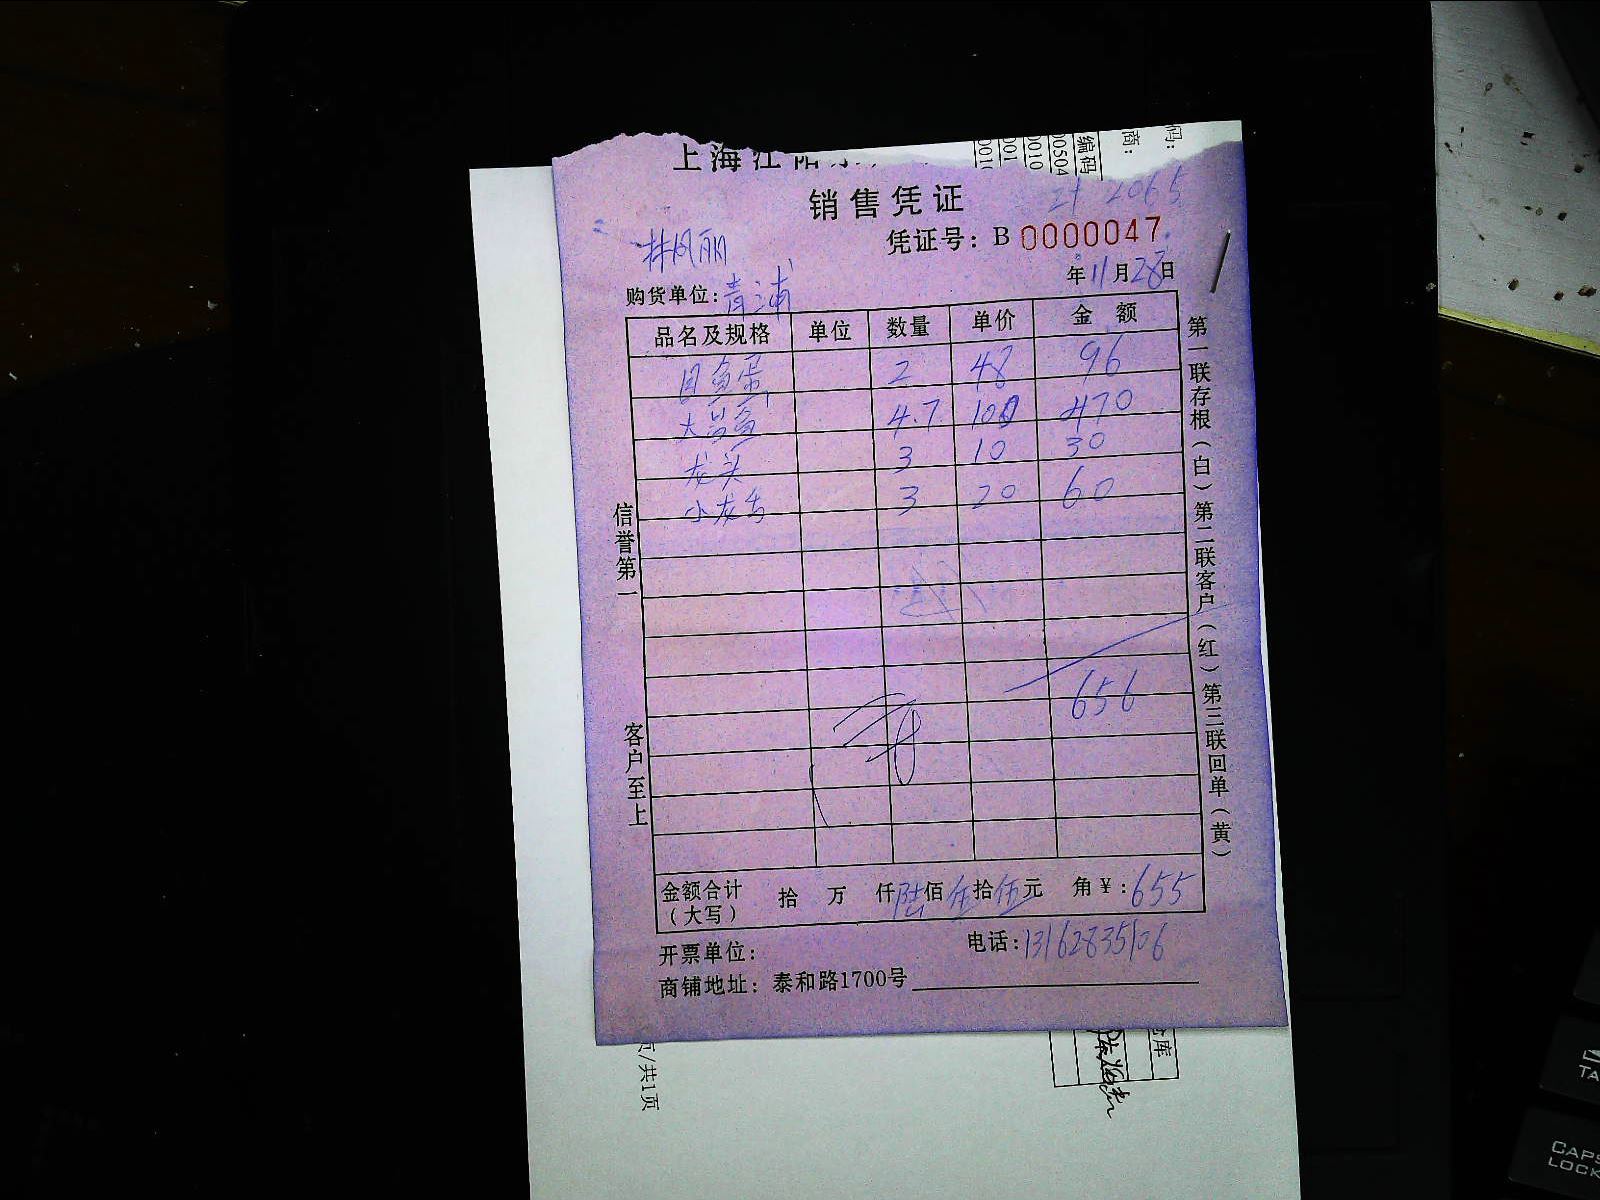 上海江阳
销售凭证
21 2065
林凤丽
凭证号：B 0000047
年11月28日
购货单位：青浦
品名及规格 单位 数量 单价 金额
目鱼蛋 2 48 96
大昌鱼 4.7 100 470
龙头 3 10 30
小龙舌 3 20 60
656
金额合计（大写） 拾 万 仟陆佰伍拾伍元 角￥：655
开票单位：
电话：13162835106
商铺地址：泰和路1700号
信誉第一
客户至上
第一联存根（白）第二联客户（红）第三联回单（黄）
编码
00504
0010
001
商：
码：
仓库
页/共1页
CAPS
LOCK
TA